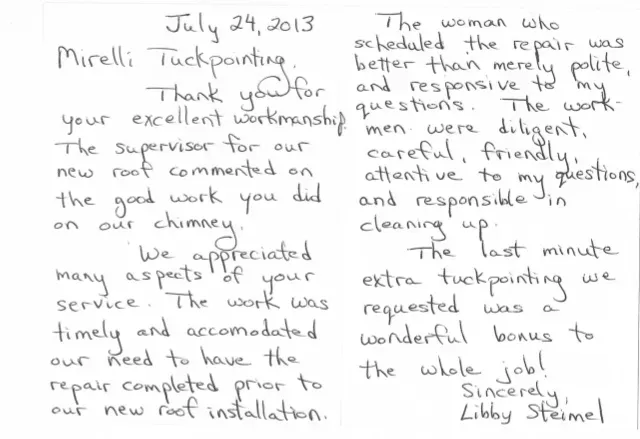 July 24, 2013
Mirelli Tuckpointing,
Thank you for
your excellent workmanship.
The supervisor for our
new roof commented on
the good work you did
on our chimney.
We appreciated
many aspects of your
service. The work was
timely and accomodated
our need to have the
repair completed prior to
our new roof installation.
The woman who
scheduled the repair was
better than merely polite,
and responsive to my
questions. The work-
men were diligent,
careful, friendly,
attentive to my questions,
and responsible in
cleaning up.
The last minute
extra tuckpointing we
requested was a
wonderful bonus to
the whole job!
Sincerely,
Libby Steimel